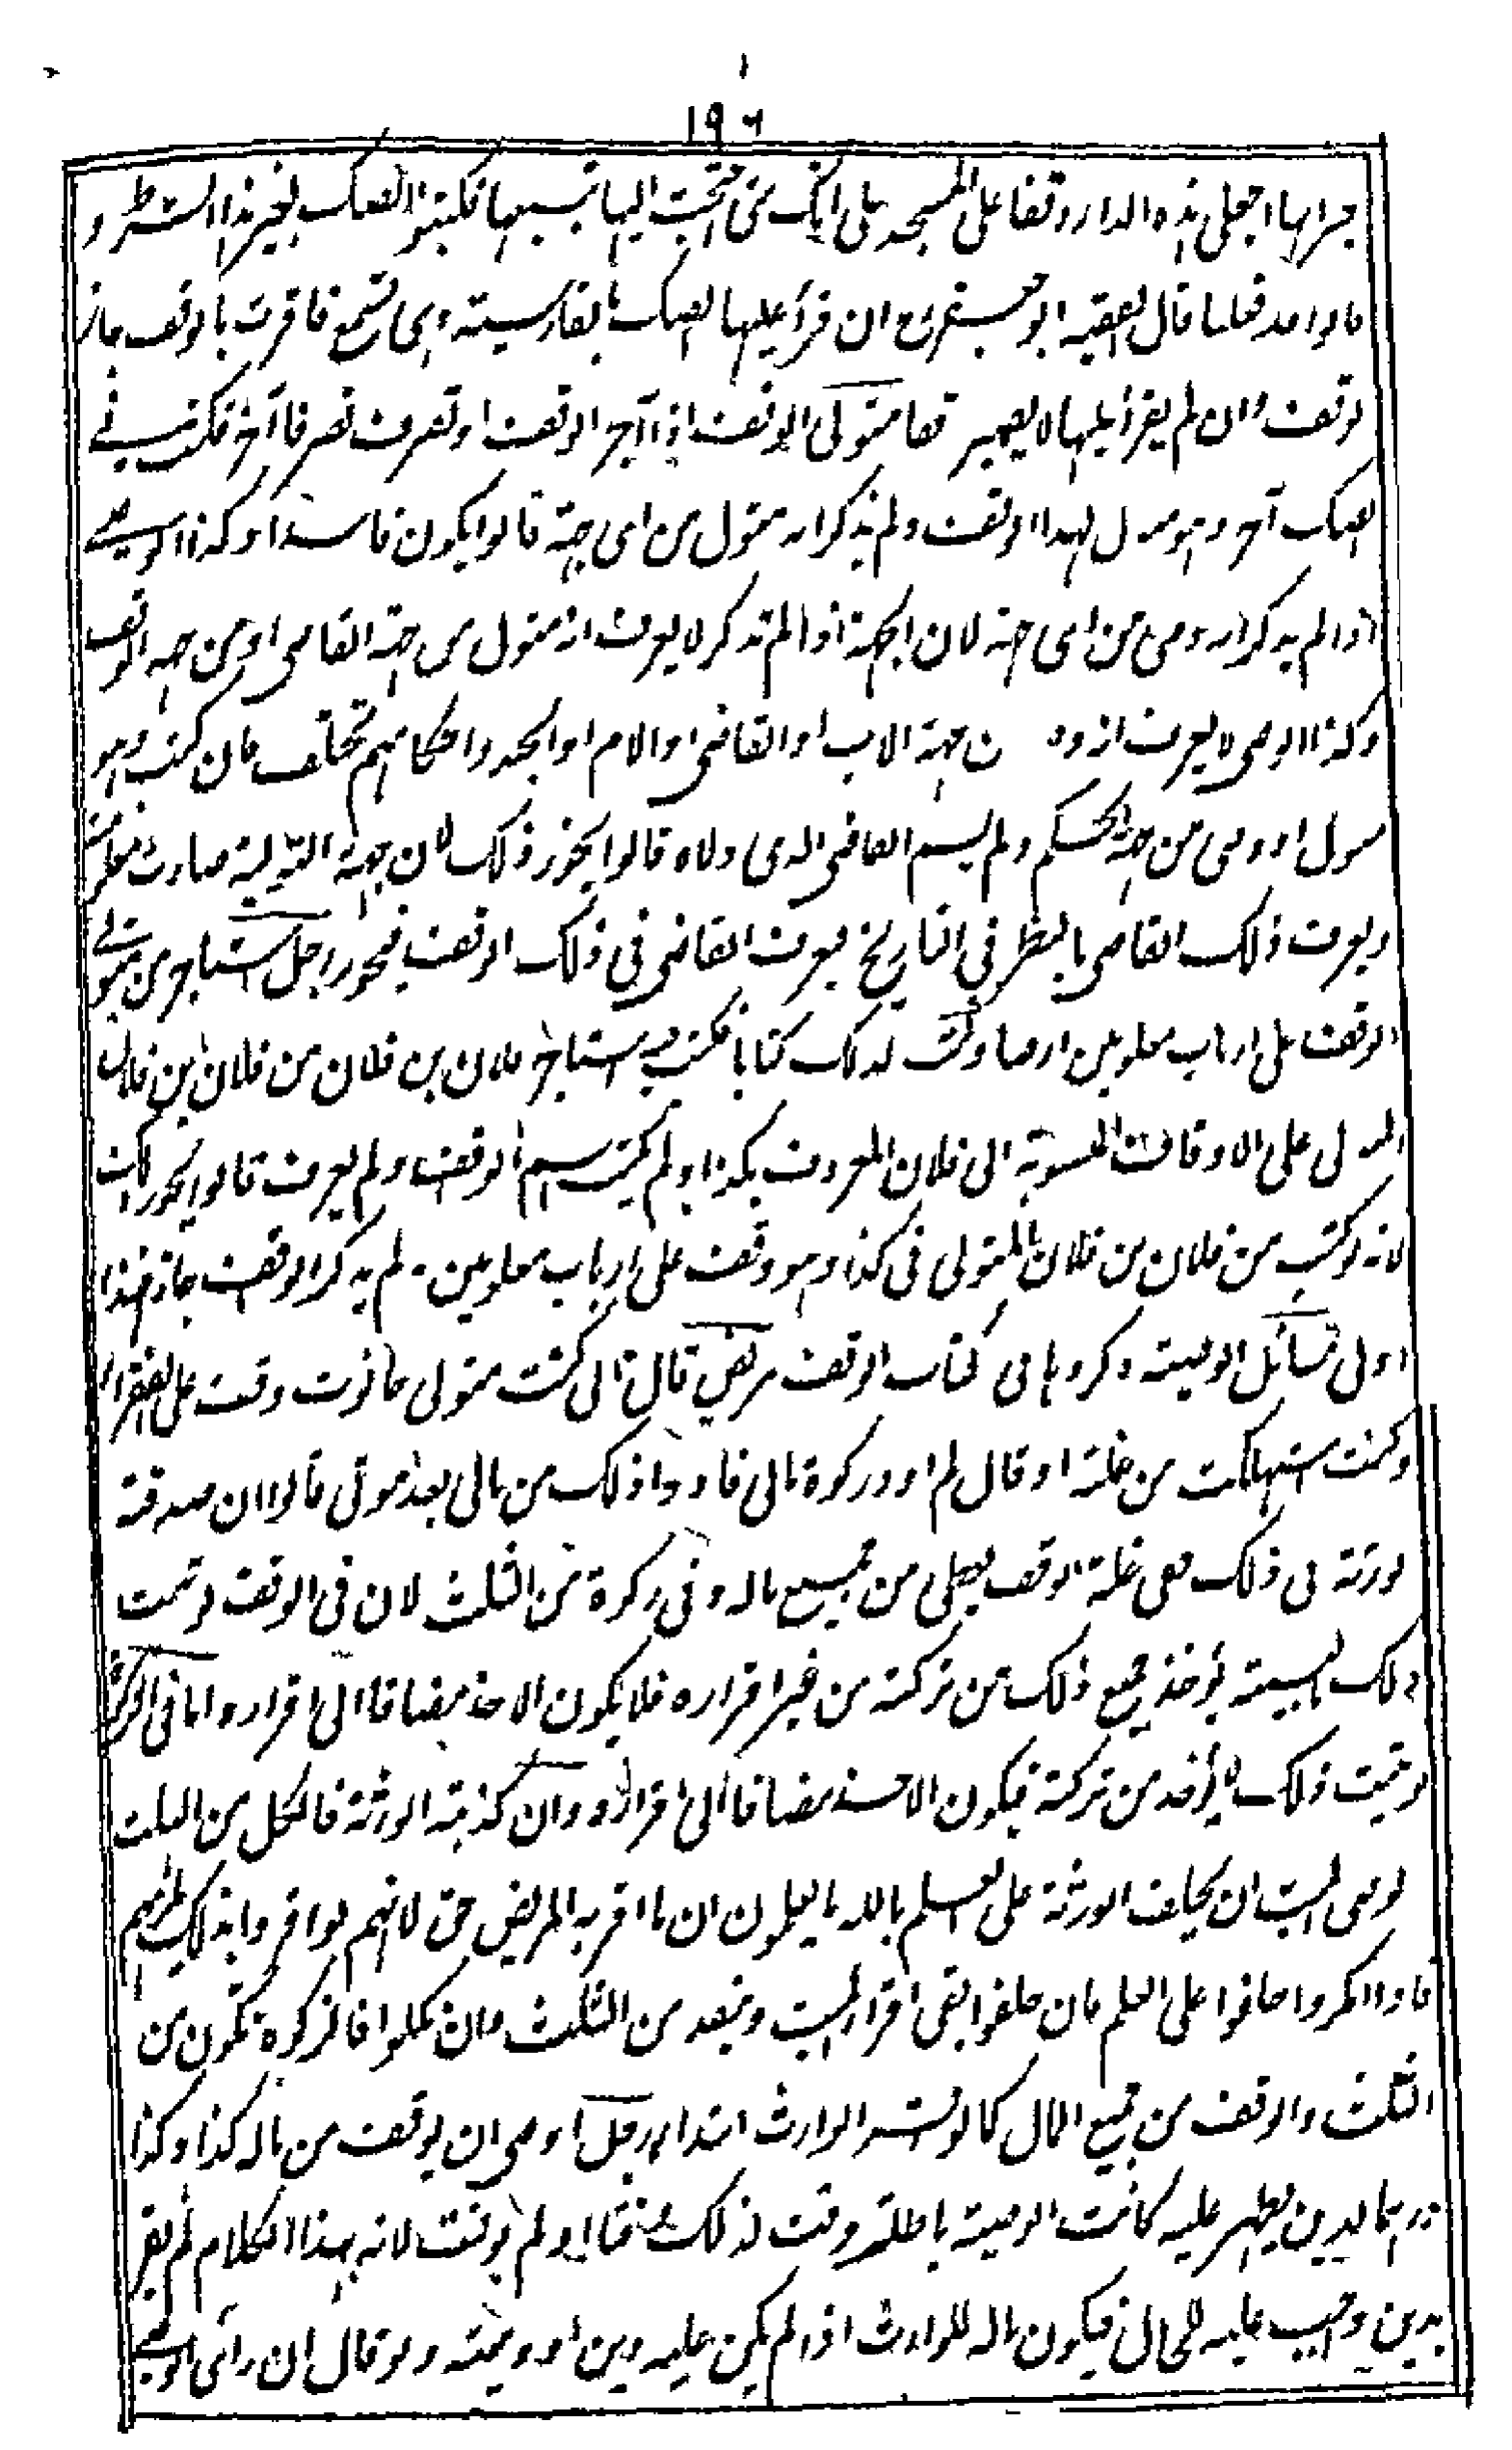 ١٩٦
جيرانها اجعلى هذه الدار وقفا على المسجد على انك متى احتجت اليها تبيعيها فكتبوا الصك بغير هذا الشرط و
قالوا قد فعلنا قال الفقيه ابو جعفر رح ان قرأ عليها الصك بالفارسية وهى تسمع فاقرت بالوقف جاز
الوقف وان لم يقرأ عليها لا يصير وقفا متولى الوقف اذا آجر الوقف او تصرف تصرفا آخر فكتب في
الصك آجر وهو متول لهذا الوقف ولم يذكر انه متول من اى جهة قالوا يكون فاسدا وكذا الوصي
اذا لم يذكر انه وصى من اى جهة لان الجهة اذا لم تذكر لا يعرف انه متول من جهة القاضى او من جهة الواقف
وكذا الوصى لا يعرف انه وصى من جهة الاب او القاضى او الام او الجد واحكامهم تختلف فان كتب وهو
متول او وصى من جهة الحكم ولم يسم القاضى الذى ولاه قالوا يجوز ذلك لان جهة التولية صارت معلومة
ويعرف ذلك القاضى بالنظر في التاريخ فيعرف القاضى في ذلك الوقف فيجوز رجل استاجر من متولي
الوقف على ارباب معلومين ارضا وكتب لذلك كتابا فكتب فيه استاجر فلان بن فلان من فلان بن فلان
المتولى على الاوقاف المنسوبة الى فلان المعروف بكذا ولم يكتب اسم الواقف ولم يعرف قالوا يجوز ذلك
لانه لو كتب من فلان بن فلان المتولى فى كذا وهو وقف على ارباب معلومين ولم يذكر الواقف جاز فهذا
اولى مسائل الوصية ذكروها فى كتاب الوقف مريض قال انى كنت متولى حانوت وقف على الفقراء
وكنت استهلكت من غلته او قال لم اود زكوة مالى فادوا ذلك من مالى بعد موتى قالوا ان صدقته
الورثة فى ذلك ففى غلة الوقف يعطى من جميع ماله وفى الزكوة من الثلث لان فى الوقف لو ثبت
ذلك بالبينة يؤخذ جميع ذلك من تركته من غير اقراره فلا يكون الاخذ مضافا الى اقراره اما فى الزكوة
لو ثبت ذلك لا يؤخذ من تركته فيكون الاخذ مضافا الى اقراره وان كذبته الورثة فالكل من الثلث
لوصى الميت ان يحلف الورثة على العلم بالله ما يعلمون ان ما اقر به المريض حق لانهم لو اقروا بذلك لزمهم
فاذا انكروا حلفوا على العلم فان حلفوا بقى اقرار الميت وينفذ من الثلث وان نكلوا فالزكوة تكون من
الثلث والوقف من جميع المال كما لو اقر الوارث ابتداء رجل اوصى ان يوقف من ماله كذا وكذا
درهما لدين يظهر عليه كانت الوصية باطلة وقت لذلك وقتا او لم يوقت لانه بهذا الكلام لم يقر
بدين وجب عليه للحال فيكون ماله للوارث اذا لم يكن عليه دين او وصية ولو قال ان رأى الوصي